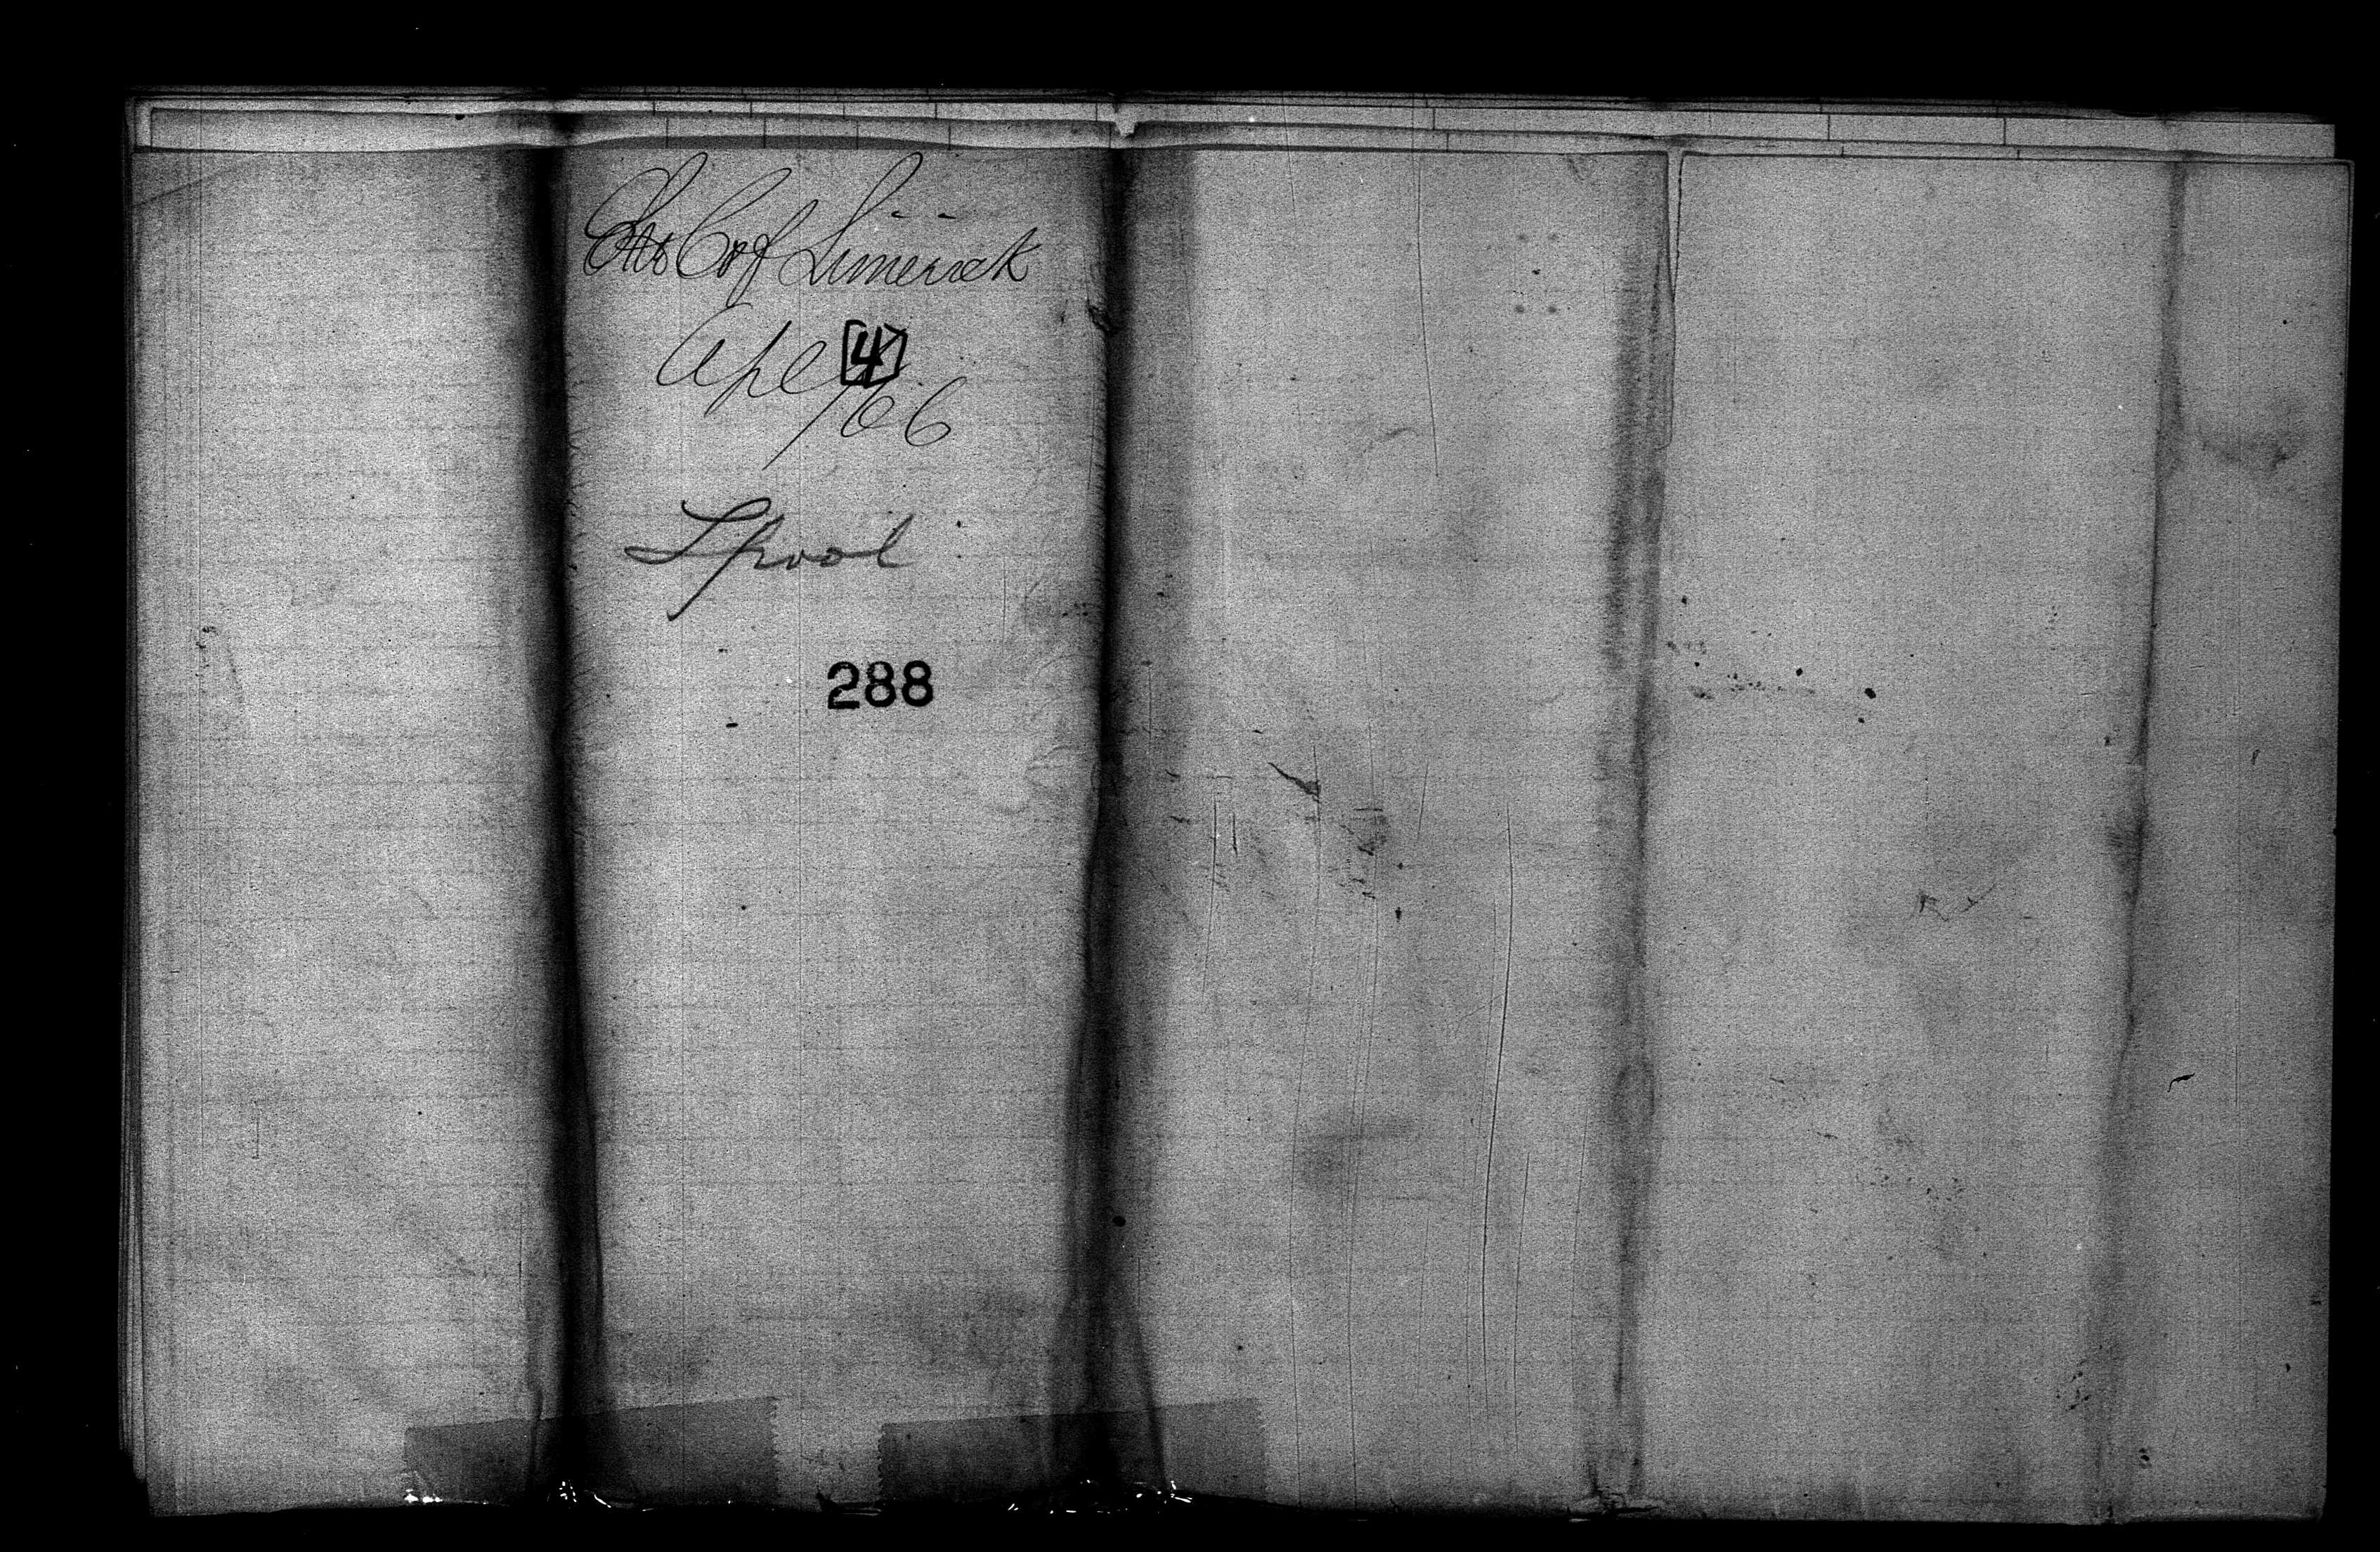 Str Cof Limerick
Apl [4]
/66
Lpool
288